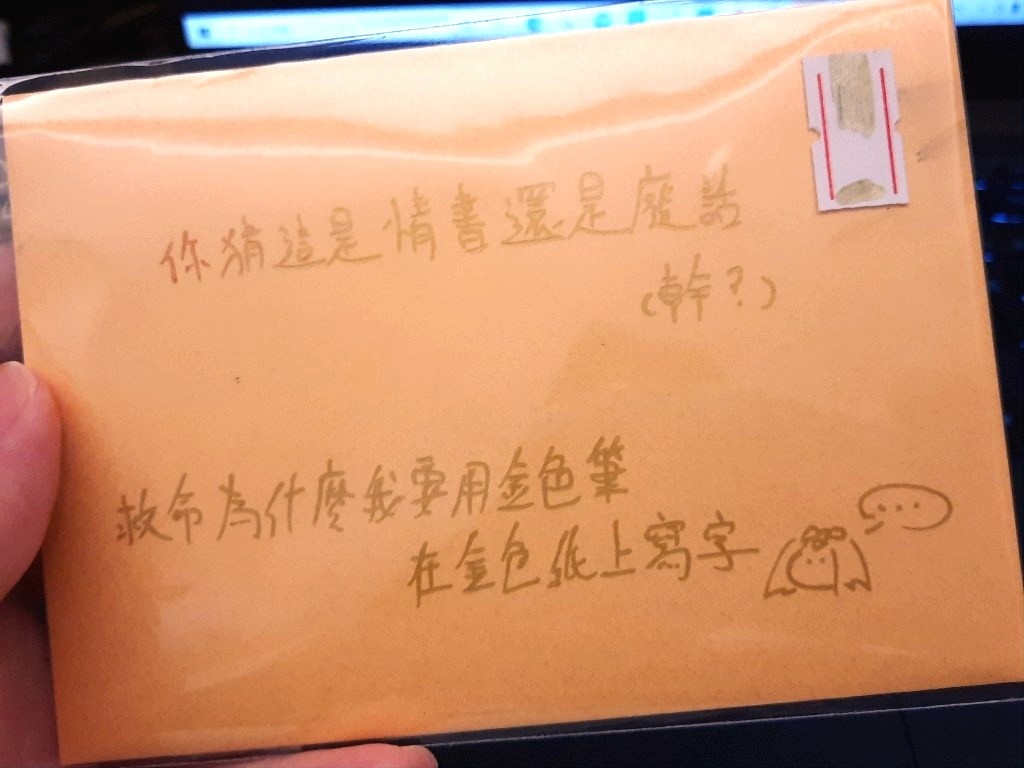 你猜這是情書還是廢話
(幹?)
救命為什麼我要用金色筆
在金色紙上寫字
...